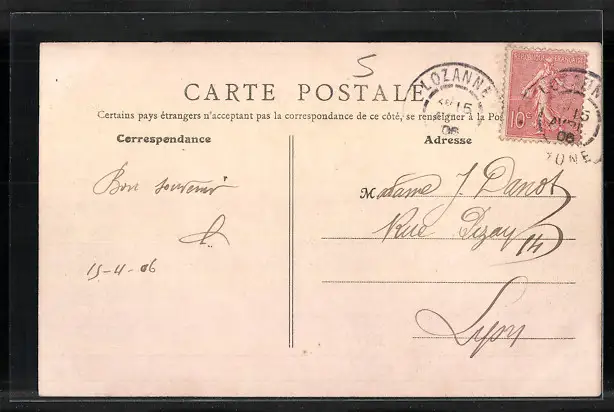 5
CARTE POSTALE
Certains pays étrangers n'acceptant pas la correspondance de ce côté, se renseigner à la Pos
Correspondance
Adresse
LOZANNE
15
06
10
LOZANNE
15
AVRIL
06
Bon souvenir
15-4-06
Madame J. Danot
Rue Dizay 14
Lyon